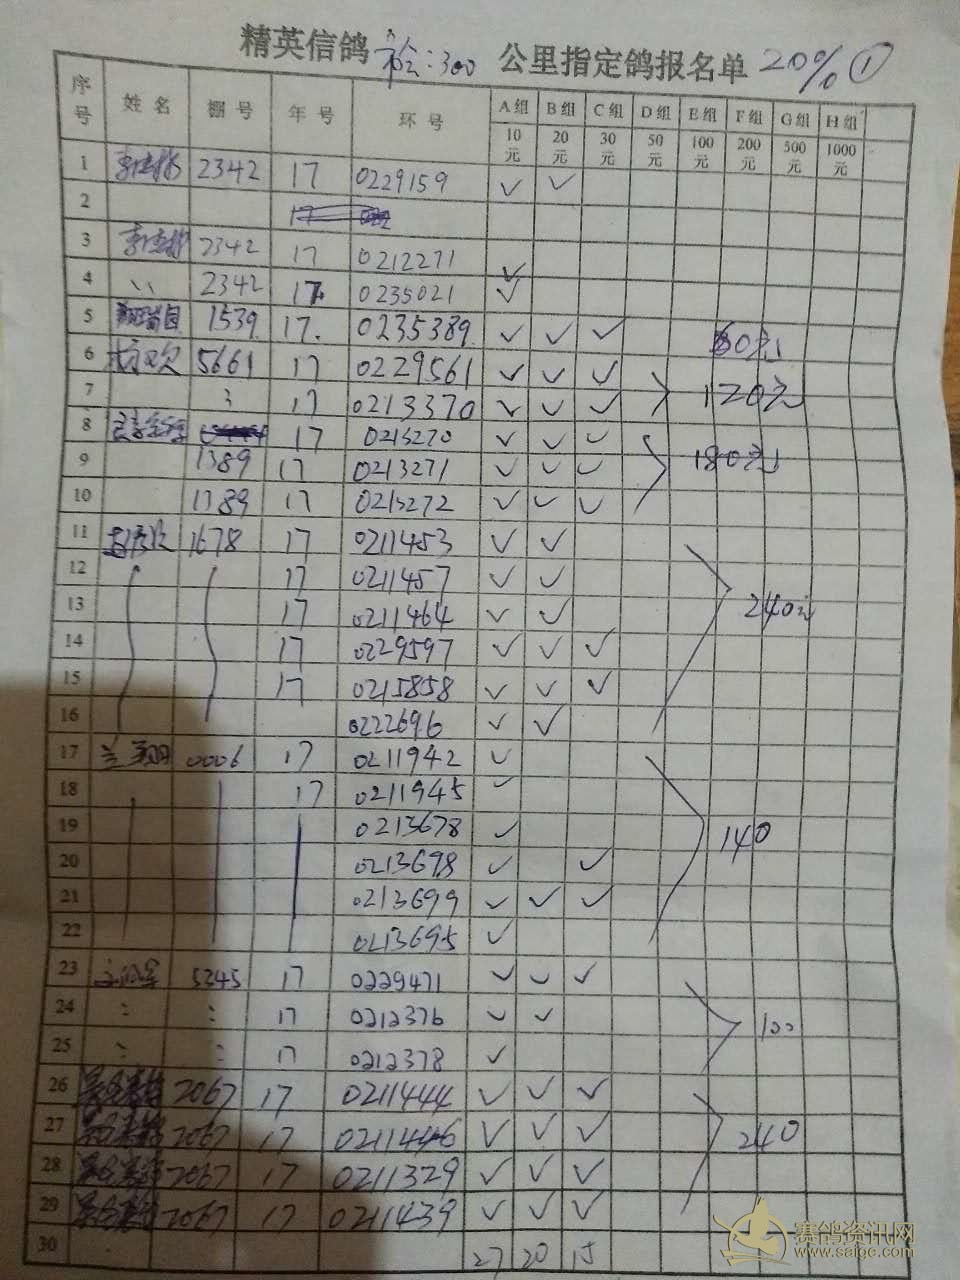 精英信鸽 300 公里指定鸽报名单 20% ①
序号 姓名 棚号 年号 环号 A组 B组 C组 D组 E组 F组 G组 H组
10元 20元 30元 50元 100元 200元 500元 1000元
1 2342 17 0229159 ✓ ✓
2 17
3 2342 17 0212271 ✓
4 2342 17 0235021 ✓
5 1539 17. 0235389 ✓ ✓ ✓ 60元
6 5661 17 0229561 ✓ ✓ ✓
7 17 0213370 ✓ ✓ ✓ 120元
8 17 0213270 ✓ ✓ ✓
9 1389 17 0213271 ✓ ✓ ✓ 180元
10 1389 17 0213272 ✓ ✓ ✓
11 1678 17 0211453 ✓ ✓
12 17 0211457 ✓ ✓
13 17 0211464 ✓ ✓ 240元
14 17 0229597 ✓ ✓ ✓
15 17 0215858 ✓ ✓ ✓
16 0222696 ✓ ✓
17 0006 17 0211942 ✓
18 17 0211945 ✓
19 0213678 ✓ 140
20 0213698 ✓ ✓
21 0213699 ✓ ✓ ✓
22 0213695 ✓
23 5345 17 0229471 ✓ ✓ ✓
24 17 0212376 ✓ ✓ 100
25 17 0212378 ✓
26 2067 17 0211444 ✓ ✓ ✓
27 2067 17 0211446 ✓ ✓ ✓ 240
28 2067 17 0211329 ✓ ✓ ✓
29 2067 17 0211439 ✓ ✓ ✓
30 27 20 15
赛鸽资讯网
www.saigc.com